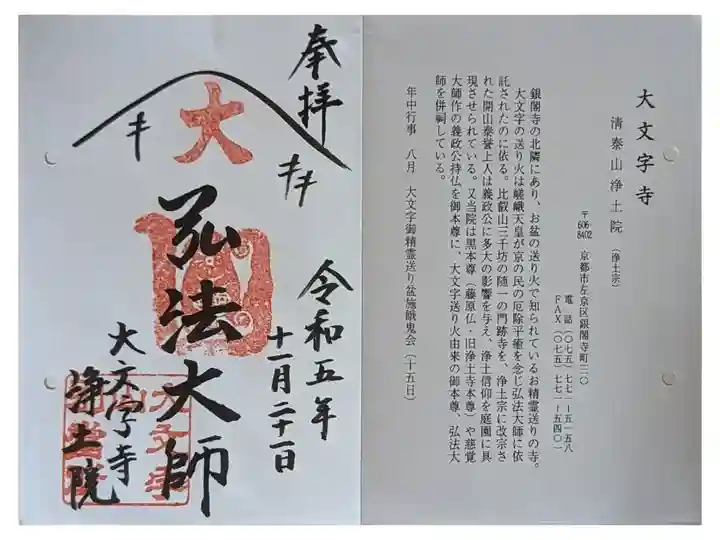 奉拝
大
弘法大師
令和五年
十一月二十一日
大文字寺
浄土院
大文字寺
清泰山浄土院（浄土宗）
〒606-8402 京都市左京区銀閣寺町三〇
電話（〇七五）七七一ー五一五八
FAX（〇七五）七七一ー五四〇一
銀閣寺の北隣にあり、お盆の送り火で知られているお精霊送りの寺。
大文字の送り火は嵯峨天皇が京の民の厄除平癒を念じ弘法大師に依
託されたのに依る。比叡山三千坊の随一の門跡寺を、浄土宗に改宗さ
れた開山泰誉上人は義政公に多大の影響を与え、浄土信仰を庭園に具
現させられている。又当院は黒本尊（藤原仏・旧浄土寺本尊）や慈覚
大師作の義政公持仏を御本尊に、大文字送り火由来の御本尊、弘法大
師を併祠している。
年中行事 八月 大文字御精霊送り盆施餓鬼会（十五日）